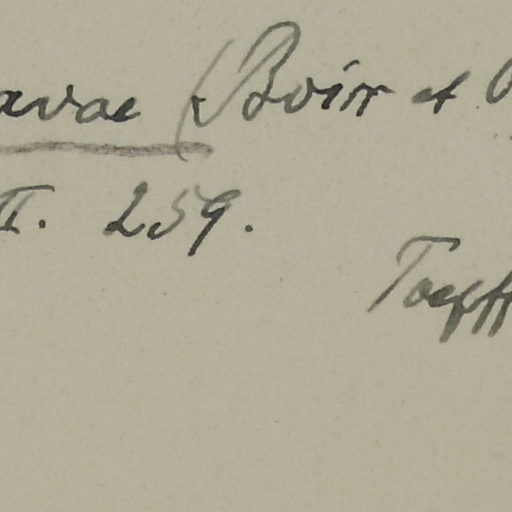 avae (Boiss et
II. 259.
Toepff